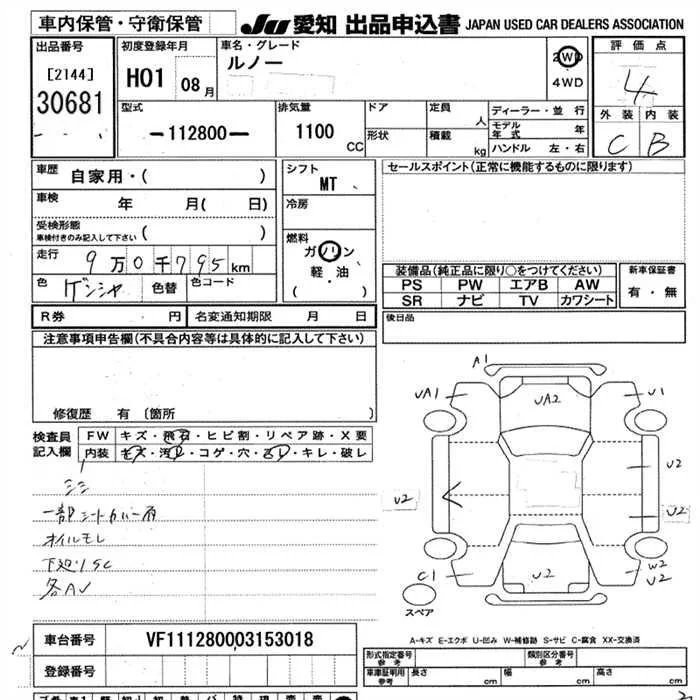 車内保管・守衛保管 JU 愛知 出品申込書 JAPAN USED CAR DEALERS ASSOCIATION
出品番号 初度登録年月 車名・グレード 評価点
[2144] H01 08月 ルノー 2WD 4
30681 4WD
型式 排気量 ドア 定員 人 ディーラー・並行 外装 内装
-112800- 1100 CC 形状 積載 kg モデル年式 年 C B
ハンドル 左・右
車歴 自家用・( ) シフト MT セールスポイント(正常に機能するものに限ります)
車検 年 月( 日) 冷房
受検形態 ( )
車検付きのみ記入して下さい
燃料
走行 9万0千795km ガソリン
軽・油
( )
色 ゲンシャ 色替 色コード
装備品(純正品に限り○をつけてください) 新車保証書
PS PW エアB AW 有・無
SR ナビ TV カワシート
R券 円 名変通知期限 月 日 後日品
注意事項申告欄(不具合内容等は具体的に記入して下さい)
修復歴 有 〔箇所 〕
検査員 FW キズ・飛石・ヒビ割・リペア跡・X要
記入欄 内装 キズ・汚レ・コゲ・穴・凸レ・キレ・破レ
一部シートカバー有
オイルモレ
下廻りSC
各AU
A1
UA1 UA2 U1
U2
U2 U2
C1 U2 W2
U2
スペア
A-キズ E-エクボ U-凹み W-補修跡 S-サビ C-腐食 XX-交換済
車台番号 VF1112800O3153018
登録番号
形式指定番号 参考 類別区分番号 参考
車庫証明用 参考 長さ cm 幅 cm 高さ cm